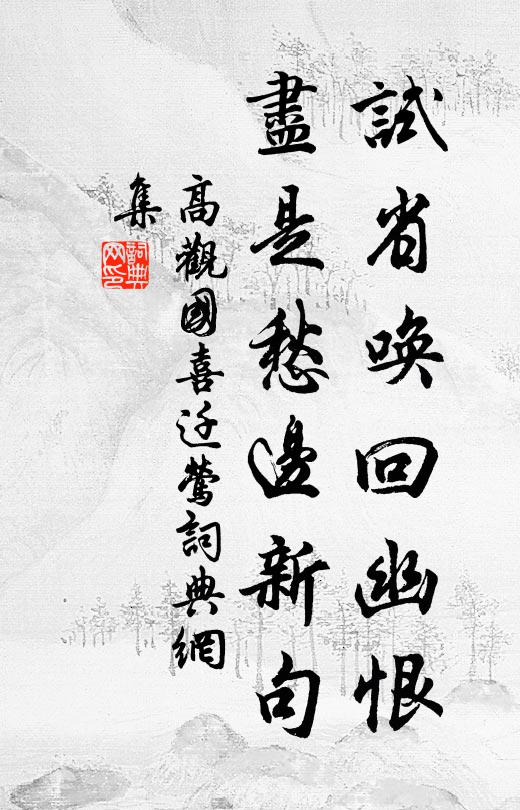 試省喚回幽恨
盡是愁邊新句
高觀國喜迁鶯詞典網
集
詞典
网印